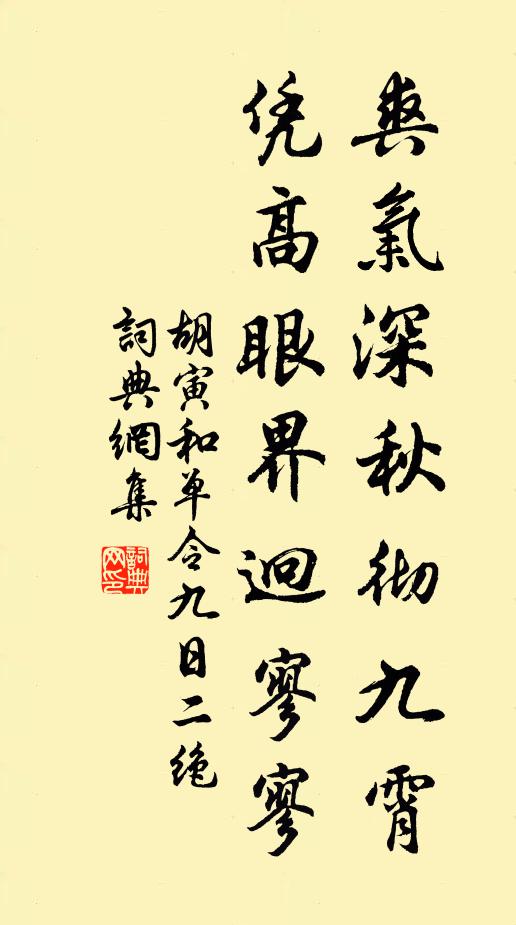 爽氣深秋彻九霄
凭高眼界迥寥寥
胡寅和单令九日二绝
詞典網集
詞典網印